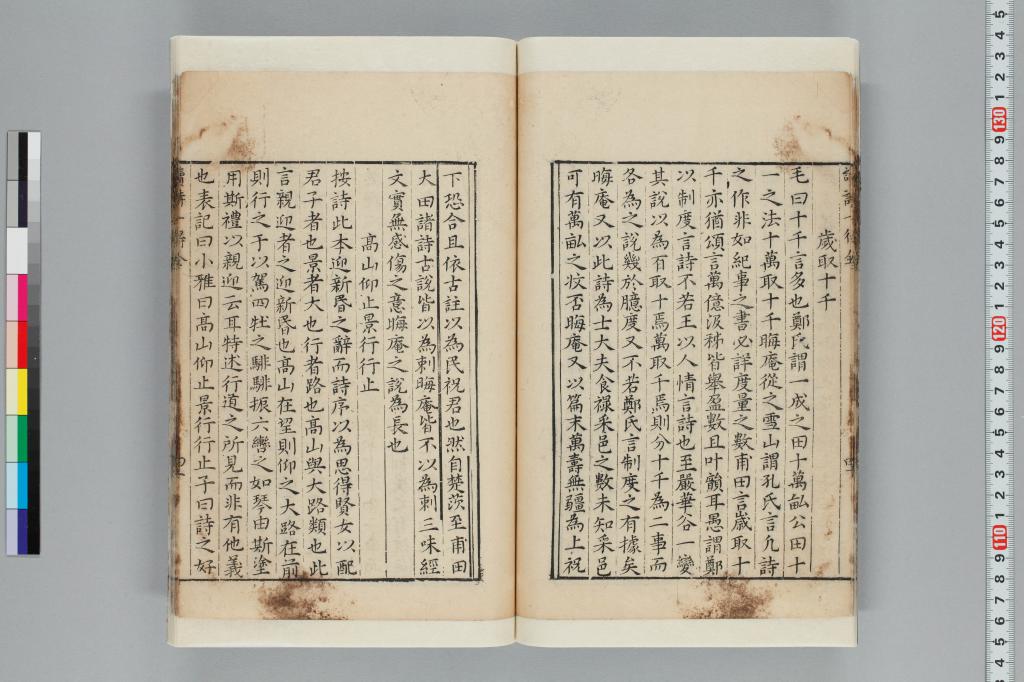 歲取十千
毛曰十千言多也鄭氏謂一成之田十萬畝公田十
一之法十萬取十千晦庵從之雪山謂孔氏言九詩
之作非如紀事之書必詳度量之數甫田言歲取十
千亦猶頌言萬億及秭皆舉盈數且叶韻耳愚謂鄭
以制度言詩不若王以人情言詩也至嚴華谷一變
其說以為百取十焉萬取千焉則分十千為二事而
各為之說幾於臆度又不若鄭氏言制度之有據矣
晦庵又以此詩為士大夫食祿采邑之數未知采邑
可有萬畝之收否晦庵又以篇末萬壽無疆為上祝
下恐合且依古註以為民祝君也然自楚茨至甫田
大田諸詩古說皆以為刺晦庵皆不以為刺三味經
文實無感傷之意晦庵之說為長也
高山仰止景行行止
按詩此本迎新昏之辭而詩序以為思得賢女以配
君子者也景者大也行者路也高山與大路類也此
言親迎者之迎新昏也高山在望則仰之大路在前
則行之于以駕四牡之騑騑振六轡之如琴由斯塗
用斯禮以親迎云耳特述行道之所見而非有他義
也表記曰小雅曰高山仰止景行行止子曰詩之好